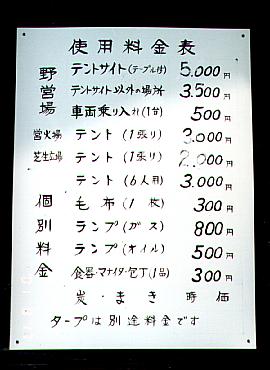 使用料金表
野営場 テントサイト(テーブル付) 5.000円
テントサイト以外の場所 3.500円
車両乗り入れ(1台) 500円
営火場 テント(1張り) 3.000円
芝生広場 テント(1張り) 2.000円
テント(6人用) 3.000円
個別料金 毛布(1枚) 300円
ランプ(ガス) 800円
ランプ(オイル) 500円
食器・マナイタ・包丁(1品) 300円
炭・まき 時価
タープは別途料金です